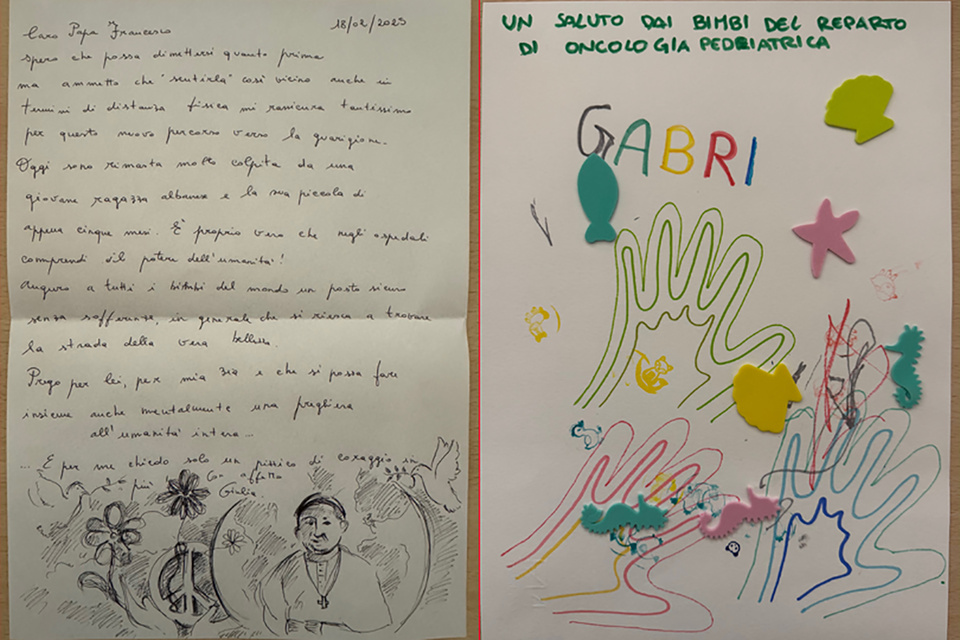 Caro Papa Francesco 18/02/2025
spero che possa dimettersi quanto prima
ma ammetto che "sentirla" così vicino anche in
termini di distanza fisica mi rassicura tantissimo
per questo nuovo percorso verso la guarigione.
Oggi sono rimasta molto colpita da una
giovane ragazza albanese e la sua piccola di
appena cinque mesi. È proprio vero che negli ospedali
comprendi il potere dell'umanità!
Auguro a tutti i bimbi del mondo un posto sicuro
senza sofferenza, in generale che si riesca a trovare
la strada della vera bellezza.
Prego per lei, per mia zia e che si possa fare
insieme anche mentalmente una preghiera
all'umanità intera...
... E per me chiedo solo un pizzico di coraggio in
più Con affetto
Giulia.
UN SALUTO DAI BIMBI DEL REPARTO
DI ONCOLOGIA PEDRIATRICA
GABRI